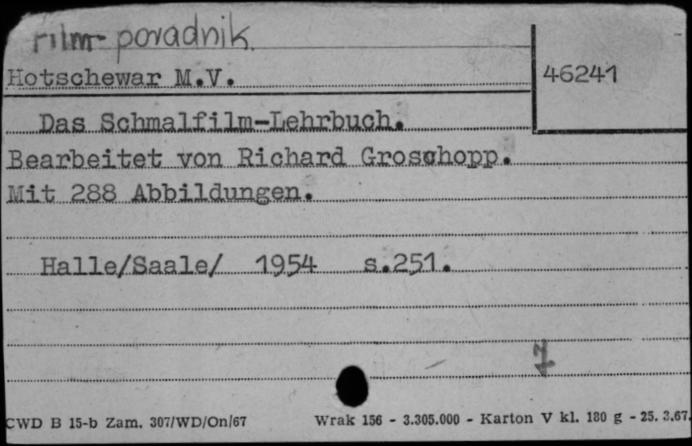 film-poradnik.
Hotschewar M.V.
46241
Das Schmalfilm-Lehrbuch.
Bearbeitet von Richard Groschopp.
Mit 288 Abbildungen.
Halle/Saale/ 1954 s.251.
CWD B 15-b Zam. 307/WD/On/67 Wrak 156 - 3.305.000 - Karton V kl. 180 g - 25. 3.67.